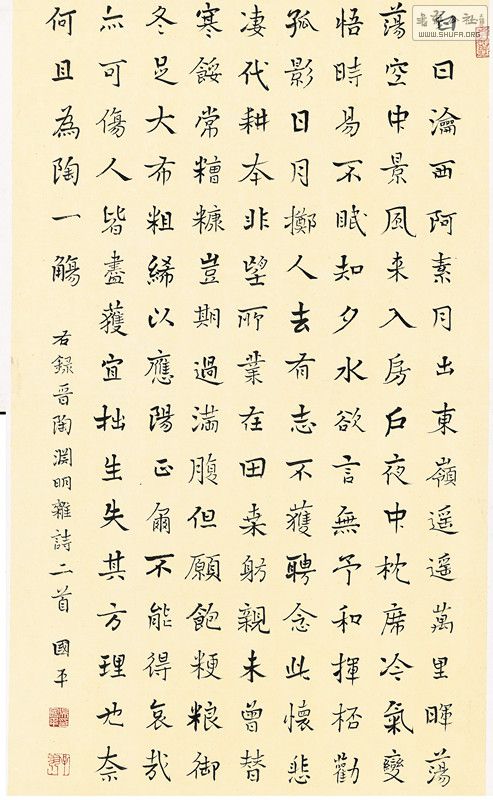 白日瀹西阿素月出東嶺遥遥萬里暉蕩
蕩空中景風来入房户夜中枕席冷氣變
悟時易不眠知夕水欲言無予和揮杯勸
孤影日月擲人去有志不獲聘念此懷悲
凄代耕本非望所業在田桑躬親未曾替
寒餒常糟糠豈期過滿腹但願飽粳粮御
冬足大布粗絺以應陽正爾不能得哀哉
亦可傷人皆盡獲宜拙生失其方理也奈
何且為陶一觴
右錄晉陶淵明雜詩二首 國平
WWW.SHUFA.ORG